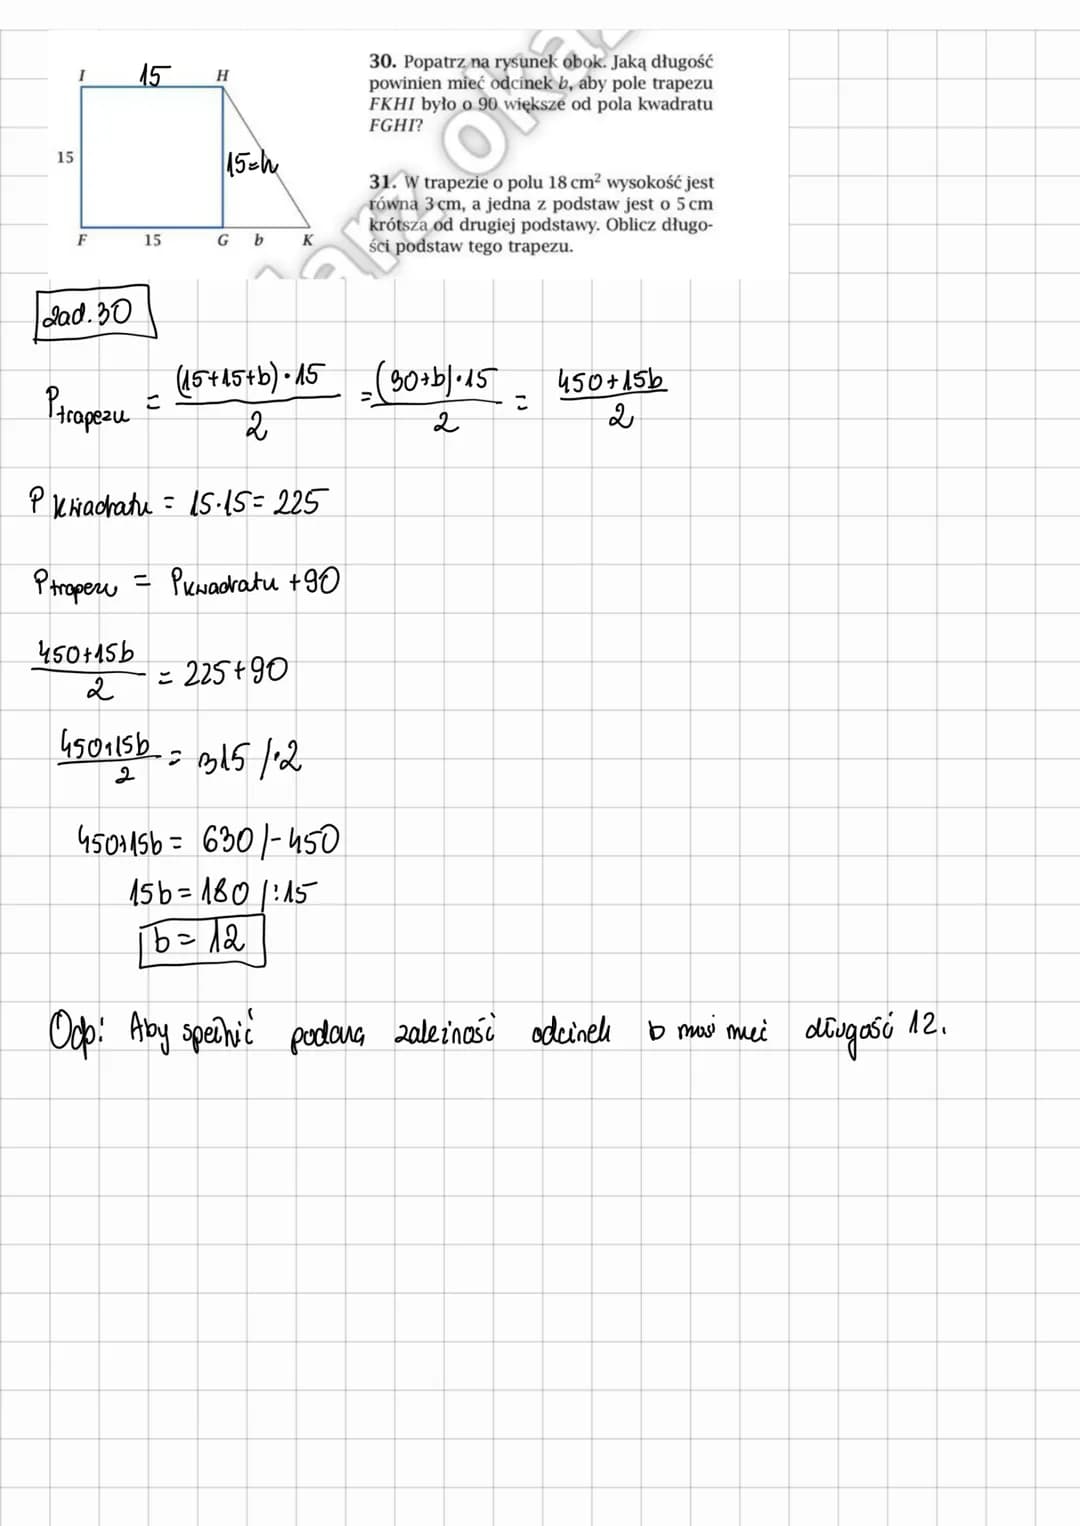 I 15 H
15
15=h
F 15 G b K
30. Popatrz na rysunek obok. Jaką długość
powinien mieć odcinek b, aby pole trapezu
FKHI było o 90 większe od pola kwadratu
FGHI?
31. W trapezie o polu 18 cm² wysokość jest
równa 3 cm, a jedna z podstaw jest o 5 cm
krótsza od drugiej podstawy. Oblicz długo-
ści podstaw tego trapezu.
zad. 30
P trapezu = (15+15+b)·15 / 2 = (30+b)·15 / 2 = 450+15b / 2
P kwadratu = 15·15 = 225
P trapezu = P kwadratu + 90
450+15b / 2 = 225+90
450+15b / 2 = 315 /·2
450+15b = 630 /-450
15b = 180 /:15
b = 12
Odp: Aby spełnić podaną zależność odcinek b musi mieć długość 12.